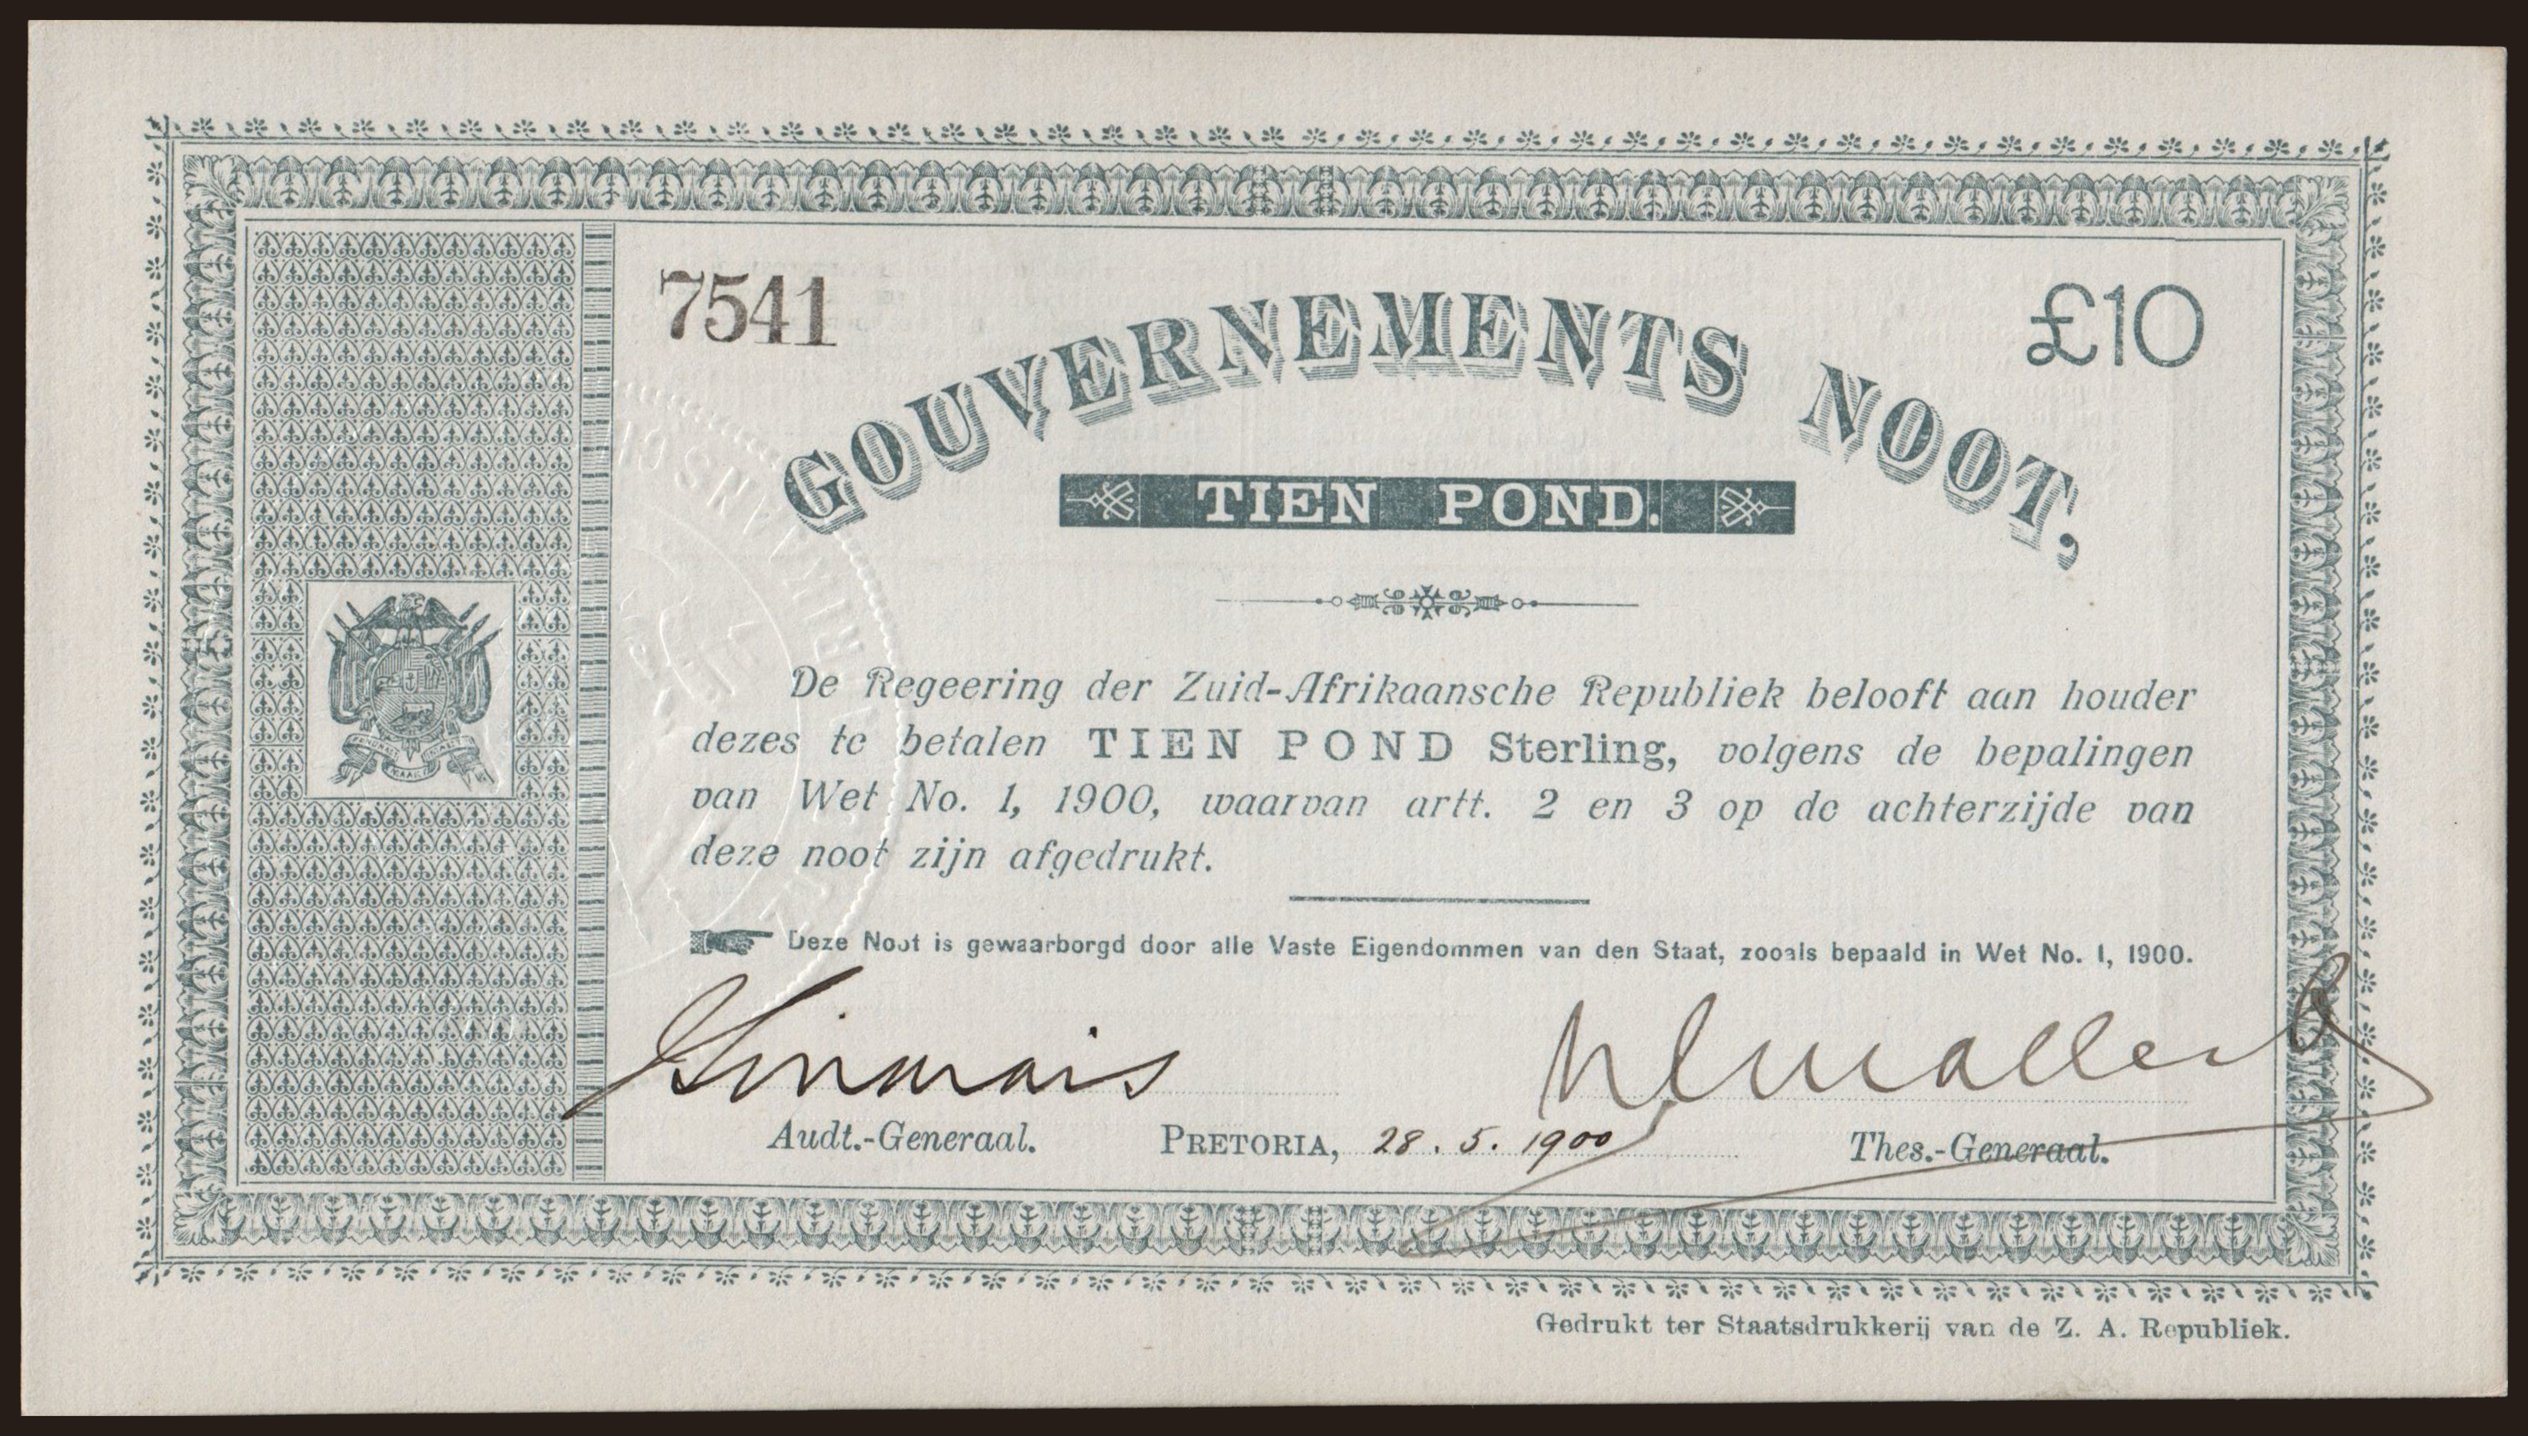 7541
£10
GOUVERNEMENTS NOOT,
TIEN POND.
De Regeering der Zuid-Afrikaansche Republiek belooft aan houder
dezes te betalen TIEN POND Sterling, volgens de bepalingen
van Wet No. 1, 1900, waarvan artt. 2 en 3 op de achterzijde van
deze noot zijn afgedrukt.
Deze Noot is gewaarborgd door alle Vaste Eigendommen van den Staat, zooals bepaald in Wet No. 1, 1900.
Audt.-Generaal.
PRETORIA, 28.5.1900
Thes.-Generaal.
Gedrukt ter Staatsdrukkerij van de Z. A. Republiek.